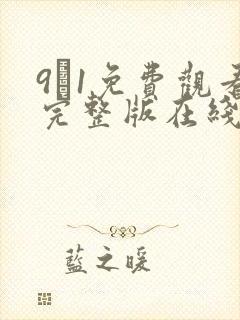 9 1免費觀看
完整版在綫
藍之暖